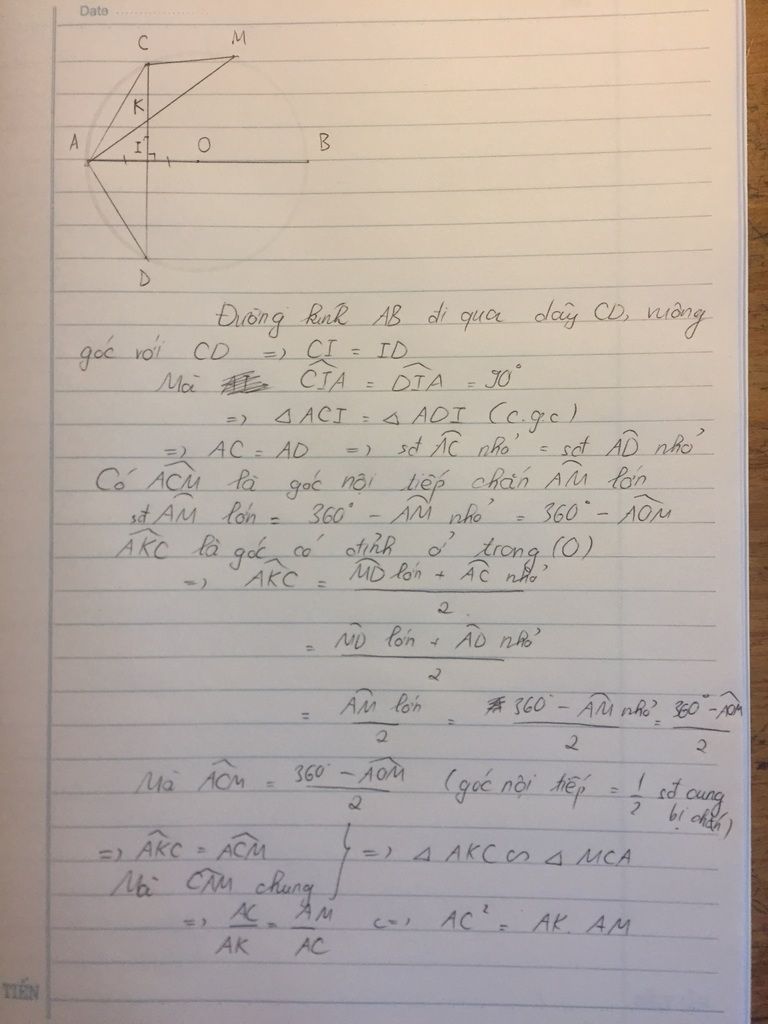 Date
C
M
K
A
I
O
B
D
Đường kính AB đi qua dây CD, vuông
góc với CD => CI = ID
Mà \widehat{CIA} = \widehat{DIA} = 90°
=> △ ACI = △ ADI (c.g.c)
=> AC = AD => sđ \widehat{AC} nhỏ = sđ \widehat{AD} nhỏ
Có \widehat{ACM} là góc nội tiếp chắn \widehat{AM} lớn
sđ \widehat{AM} lớn = 360° - \widehat{AM} nhỏ = 360° - \widehat{AOM}
\widehat{AKC} là góc có đỉnh ở trong (O)
=> \widehat{AKC} = \frac{\widehat{MD} lớn + \widehat{AC} nhỏ}{2}
= \frac{\widehat{MD} lớn + \widehat{AD} nhỏ}{2}
= \frac{\widehat{AM} lớn}{2} = \frac{360° - \widehat{AM} nhỏ}{2} = \frac{360° - \widehat{AOM}}{2}
Mà \widehat{ACM} = \frac{360° - \widehat{AOM}}{2} (góc nội tiếp = \frac{1}{2} sđ cung
bị chắn)
=> \widehat{AKC} = \widehat{ACM} } => △ AKC ∽ △ MCA
Mà \widehat{CAM} chung
=> \frac{AC}{AK} = \frac{AM}{AC} <=> AC² = AK. AM
TIẾN